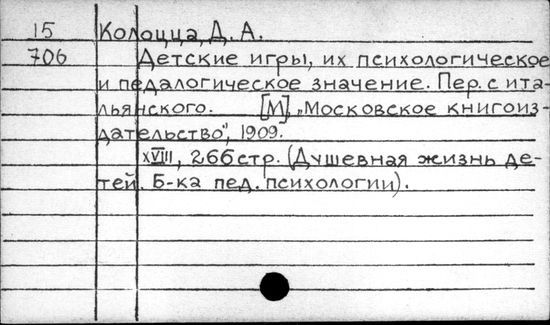 15 Колоцца, Д. А.
706 Детские игры, их психологическое
и педалогическое значение. Пер. с ита-
льянского. [М], „Московское книгоиз-
дательство", 1909.
XVIII, 266 стр. (Душевная жизнь де-
тей. Б-ка пед. психологии).